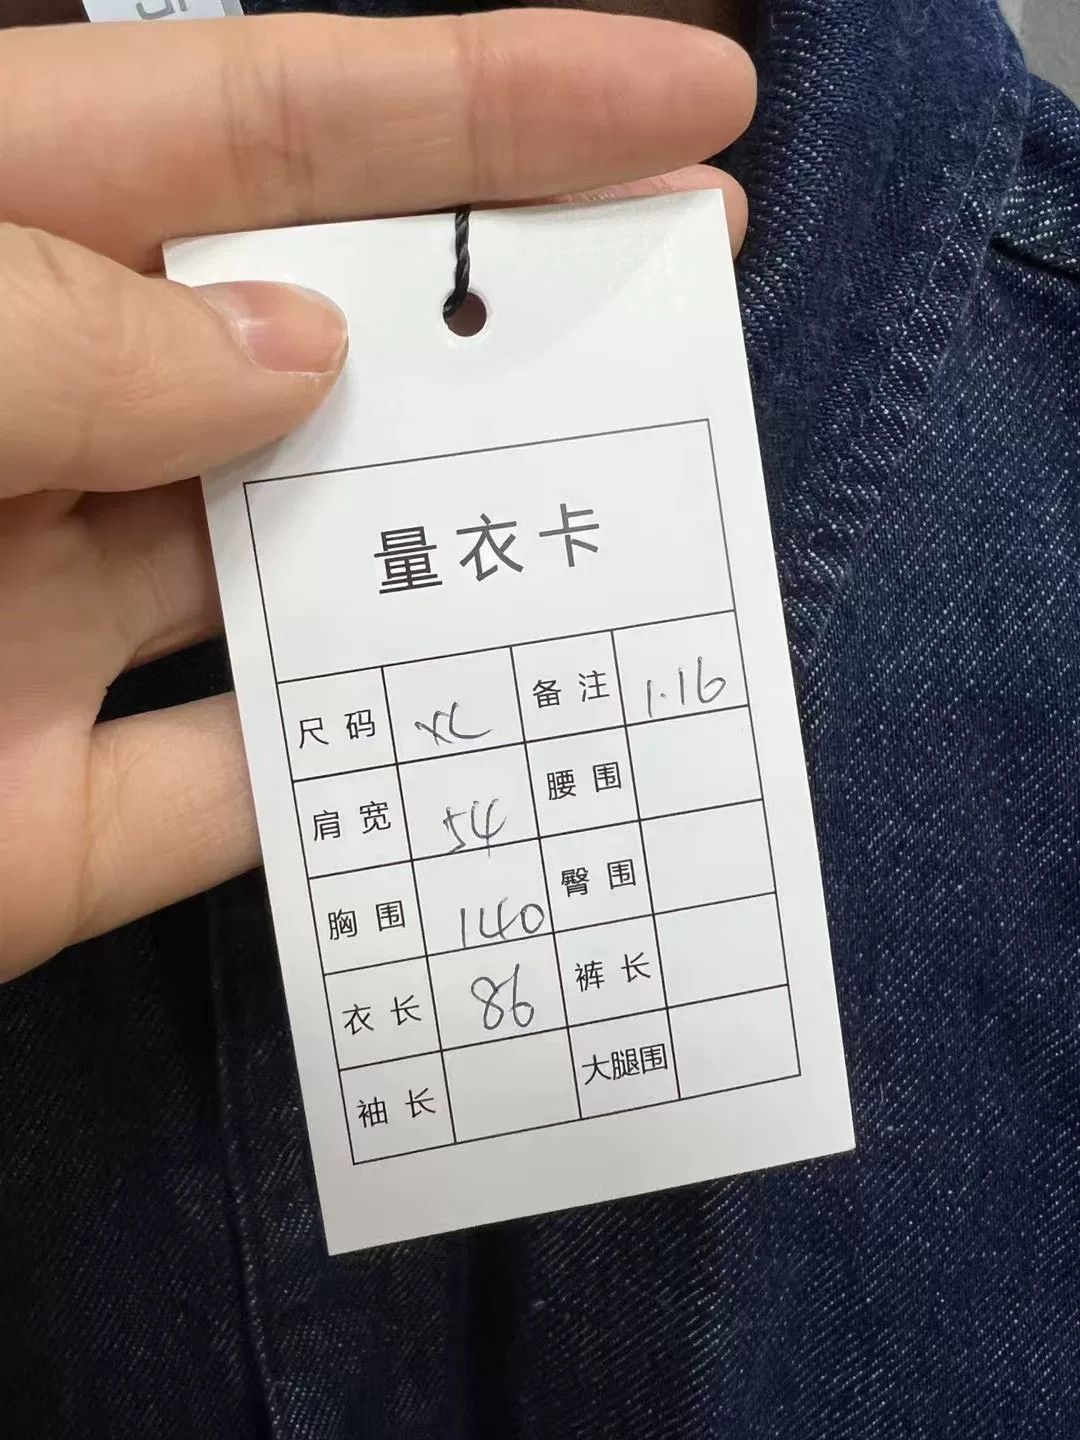 量衣卡
尺码 XL 备注 1.16
肩宽 54 腰围
胸围 140 臀围
衣长 86 裤长
袖长 大腿围